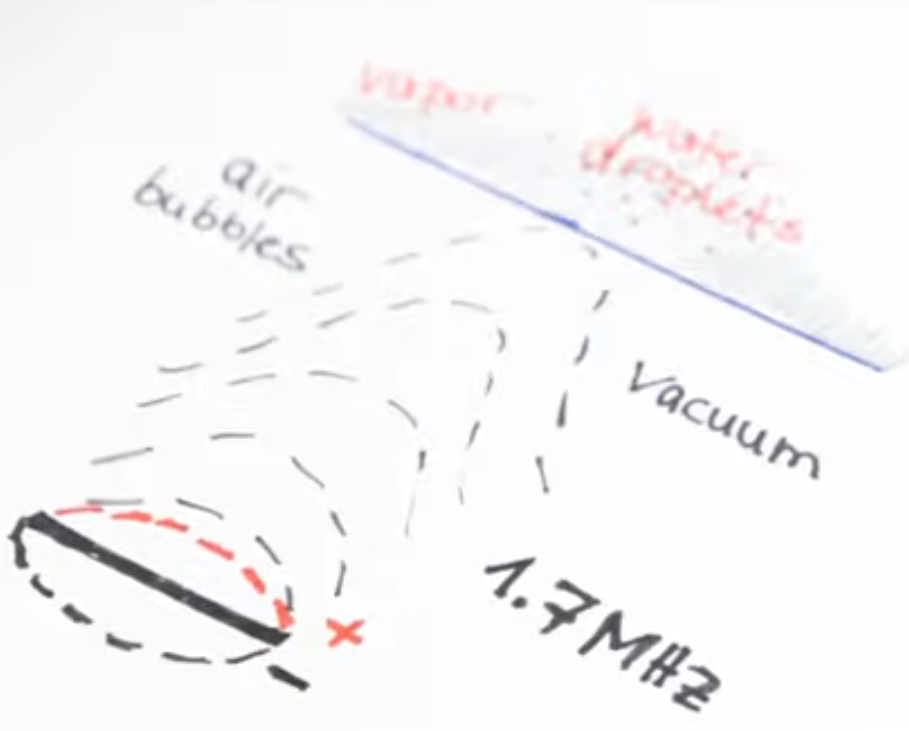 vapor
water
droplets
air
bubbles
vacuum
1.7 MHz